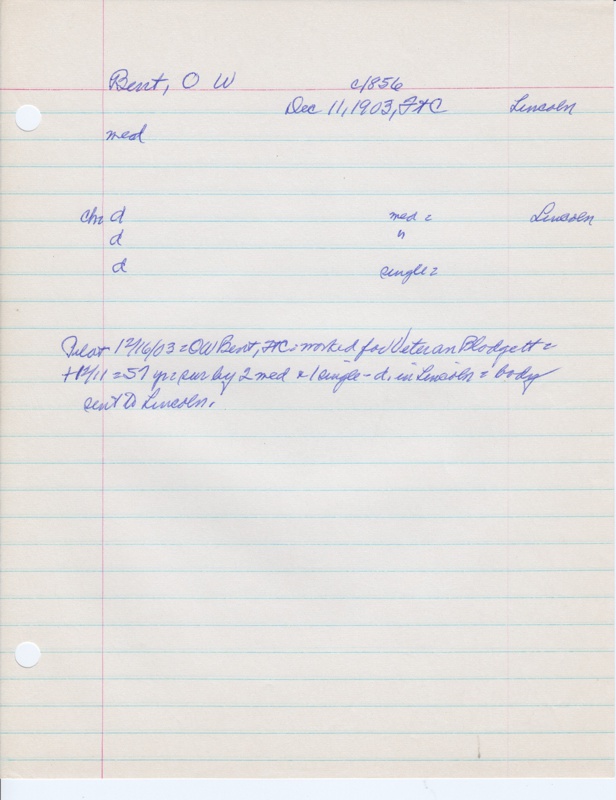 Bent, O W c/856
Dec 11, 1903, FtC Lincoln
med
chr d med = Lincoln
d "
d single =
Pilot 12/16/03 = OW Bent, FtC = worked for Veteran Blodgett =
+12/11 = 57 yr = sur by 2 med & 1 single - d. in Lincoln = body
sent to Lincoln.